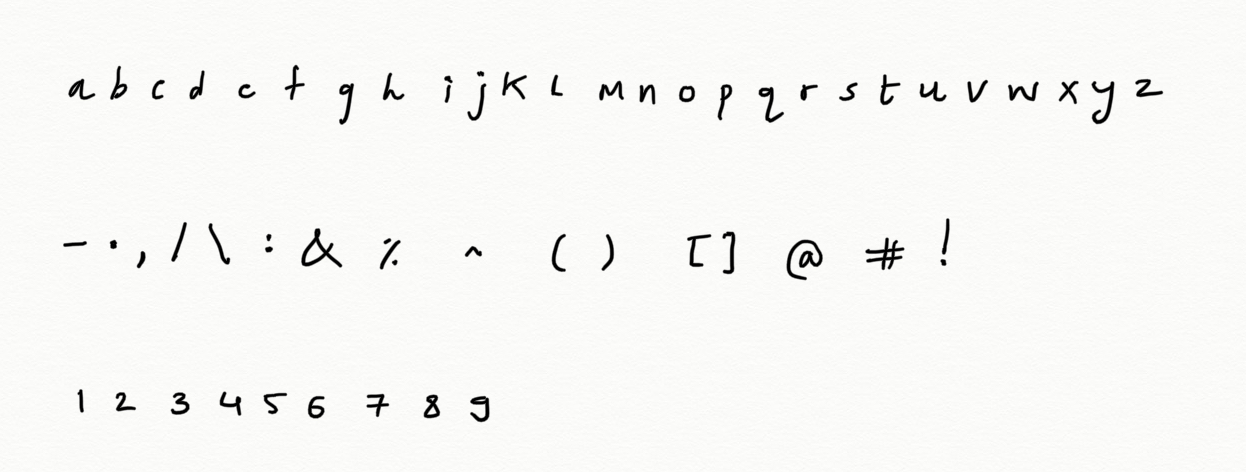 a b c d e f g h i j k l m n o p q r s t u v w x y z
- . , / \ : & % ^ ( ) [ ] @ # !
1 2 3 4 5 6 7 8 9